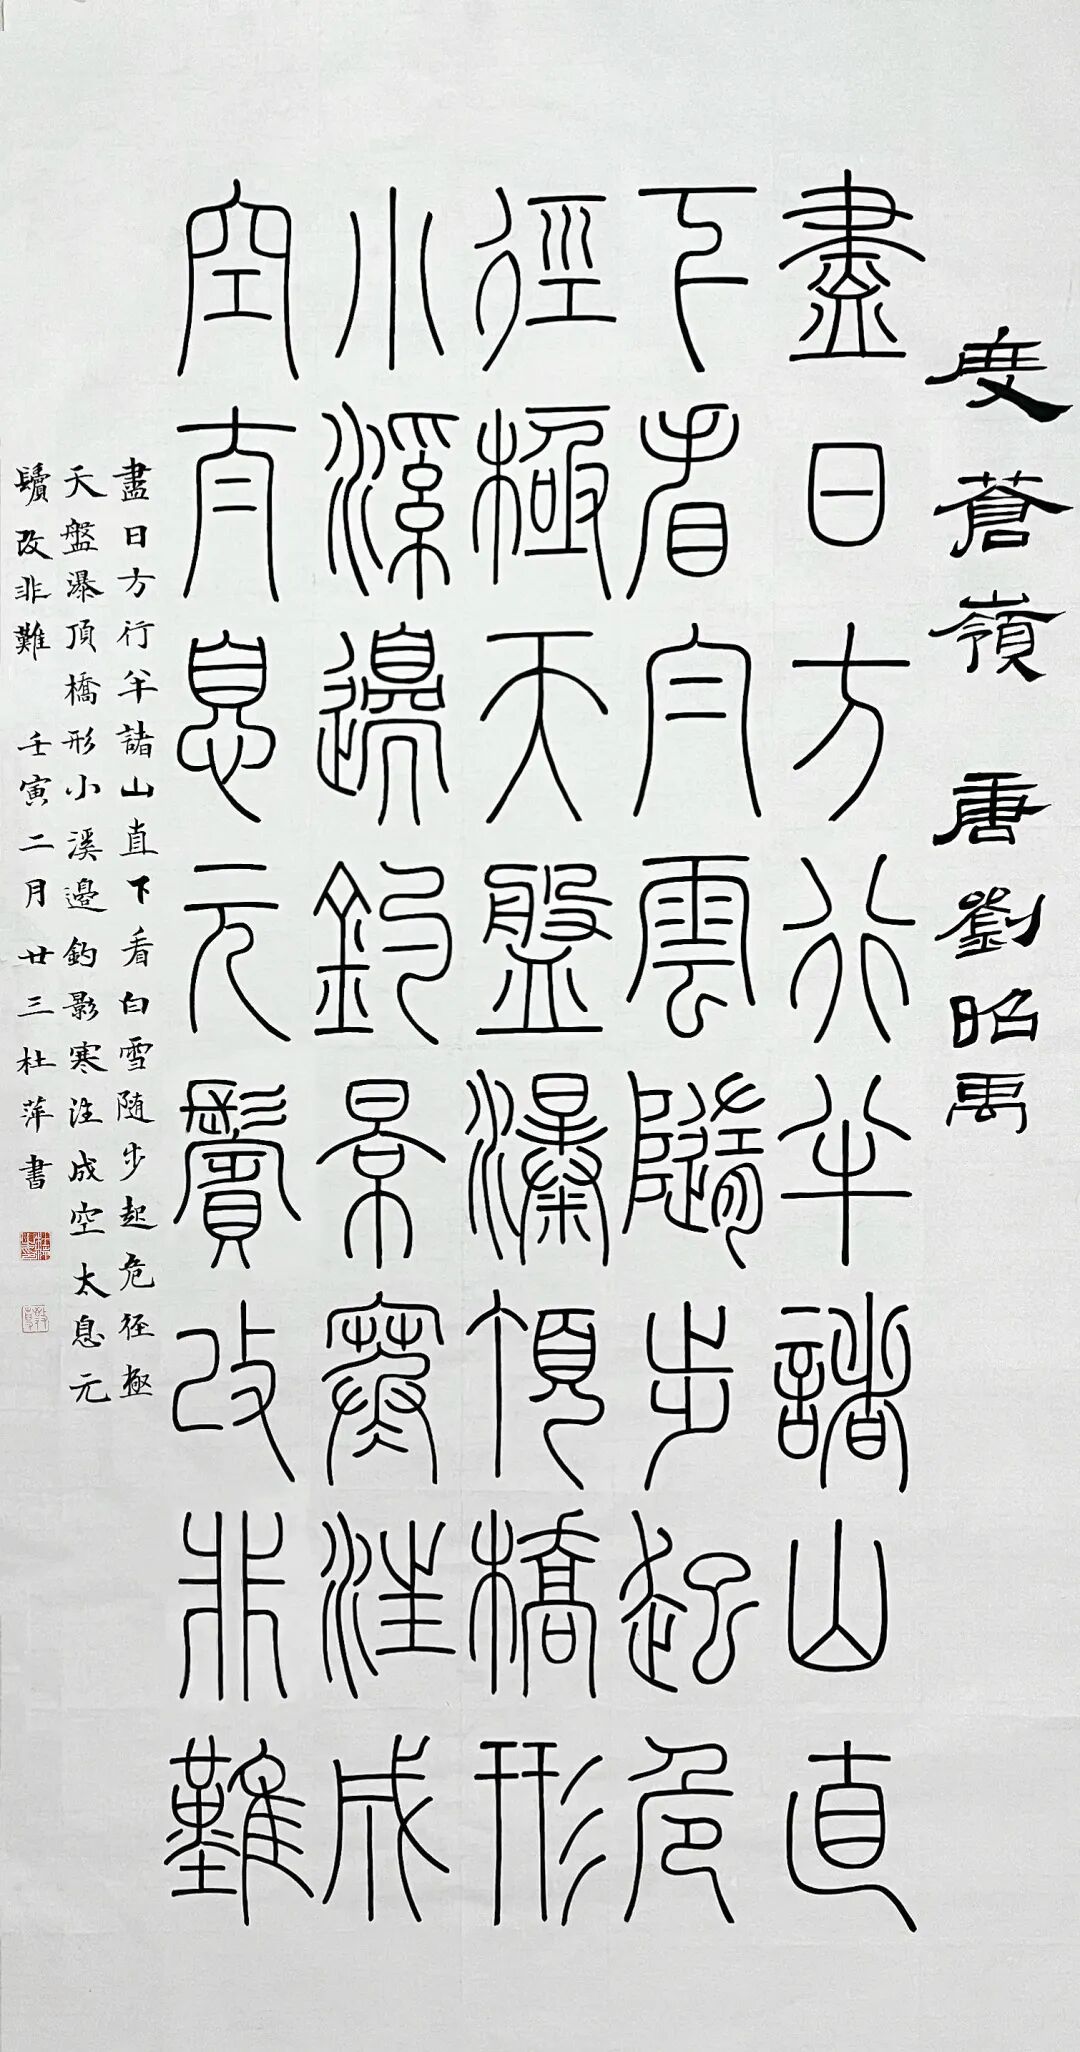 度蒼嶺 唐劉昭禹
盡日方行半諸山直
下看白雲隨步起危
徑極天盤瀑頂橋形
小溪邊釣景寒成
空太息元鬢改非難
盡日方行半諸山直下看白雪随步起危径極
天盤瀑頂橋形小溪邊釣影寒注成空太息元
鬢改非難 壬寅二月廿三杜萍書